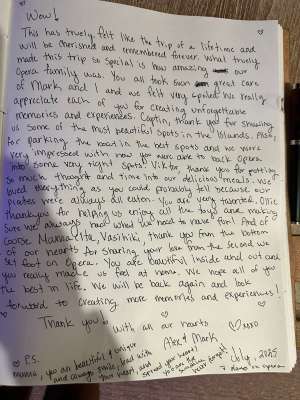 Wow!
This has truely felt like the trip of a lifetime and
will be cherished and remembered forever. What truely
made this trip so special is how amazing our
Opera family was. You all took such great care
of Mark and I and we felt very spoiled. We really
appreciate each of you for creating unforgettable
memories and experiences. Captin, thank you for showing
us some of the most beautiful spots in the Islands. Also,
for parking the boat in the best spots and we were
very impressed with how you were able to back Opera
into some very tight spots. Vik, thank you for putting
so much thought and time into our delicious meals. We
loved everything as you could probably tell because our
plates were always all eaten. You are very talented. Ollie
thank you for helping us enjoy all the toys and making
sure we always had what we need to have fun! And of
course Mamacita, Vasiliki, thank you from the bottom
of our hearts for sharing your love from the second we
set foot on Opera. You are beautiful inside and out and
you really made us feel at home. We hope all of you
the best in life. We will be back again and look
forward to creating more memories and experiences!
Thank you!
With all our hearts
Alex & Mark
xoxo
P.S.
mama, you are beautiful & unique
and always smile, lead with
your heart, and spread your
July, 2025
7 days on Opera